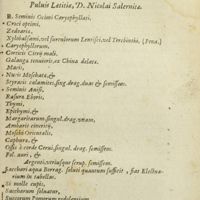 Pulvis Letitiæ, D. Nicolai Salernita.
R. Seminis Ocimi Caryophyllati,
Croci optimi,
Zedoariæ,
Xylobalsami, vel surculorum Lentisci, vel Terebinthi, (Pena.)
Caryophyllorum,
Corticis Citrij mali,
Galanga tenuioris, ex China delatæ,
Maceris,
Nucis Moschatæ, &
Styracis calamites, sing. drag. duas & semissem.
Seminis Anisi,
Rasuræ Eboris,
Thymi,
Epithymi, &
Margaritarum, sing. drag. unam,
Ambari cineritij,
Moschi Orientalis,
Caphuræ, &
Ossis è corde Cerui, singul. drag. semissem.
Fol. auri, &
Argenti, utriusque scrup. semissem.
Sacchari aqua Borrag. soluti quantum sufficit, fiat Electua-
rium in tabellis.
Si molle cupis,
Saccharum soluatur,
Succorum Pomorum redolentium